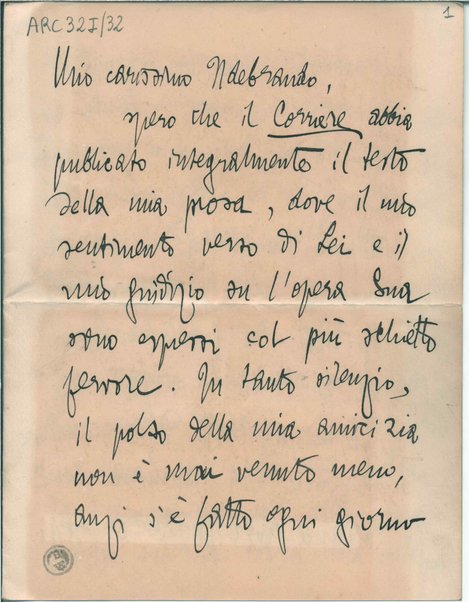 ARC 32 I/32
1
Mio carissimo Ildebrando,
spero che il Corriere abbia
publicato integralmente il testo
della mia prosa, dove il mio
sentimento verso di Lei e il
mio giudizio su l'opera Sua
sono espressi col più schietto
fervore. In tanto silenzio,
il polso della mia amicizia
non è mai venuto meno,
anzi s'è fatto ogni giorno